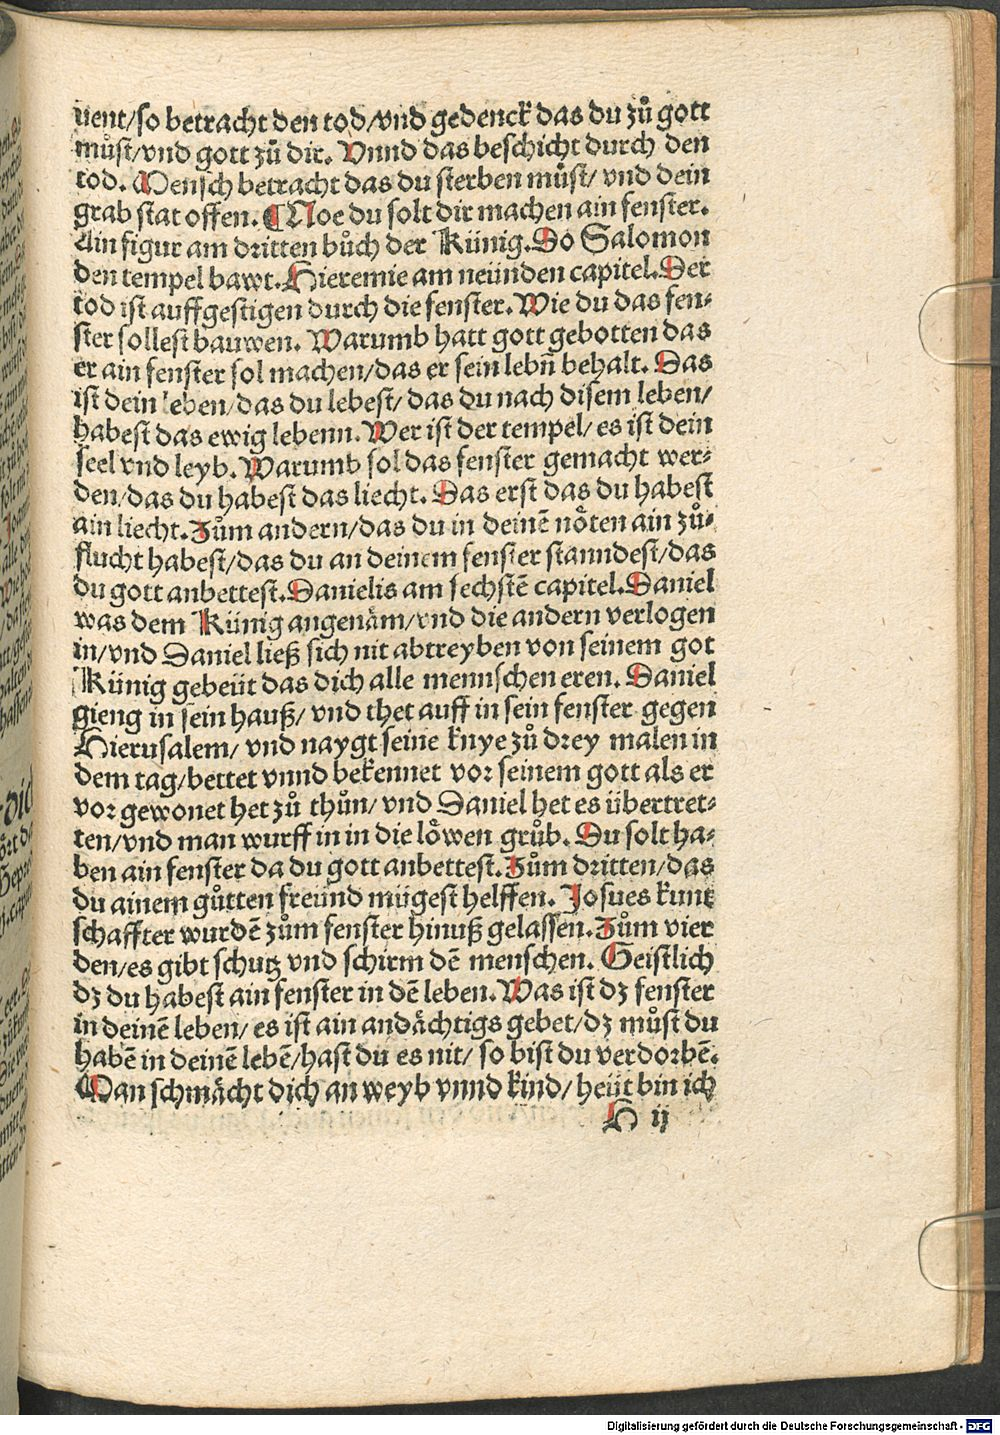 uent/so betracht den tod/vnd gedenck das du zů gott
můst/vnd gott zů dir. Vnnd das beschicht durch den
tod. Mensch betracht das du sterben můst/ vnd dein
grab stat offen. ¶ Noe du solt dir machen ain fenster.
Ain figur am dritten bůch der Künig. Do Salomon
den tempel bawt. Hieremie am neünden capitel. Der
tod ist auffgestigen durch die fenster. Wie du das fen⸗
ster sollest bauwen. Warumb hatt gott gebotten das
er ain fenster sol machen/das er sein lebn̄ behalt. Das
ist dein leben/das du lebest/ das du nach disem leben/
habest das ewig lebenn. Wer ist der tempel/ es ist dein
seel vnd leyb. Warumb sol das fenster gemacht wer⸗
den/das du habest das liecht. Das erst das du habest
ain liecht. Zům andern/das du in deinē nöten ain zů⸗
flucht habest/das du an deinem fenster stanndest/das
du gott anbettest. Danielis am sechstē capitel. Daniel
was dem Künig angenäm/vnd die andern verlogen
in/vnd Daniel ließ sich nit abtreyben von seinem got
Künig gebeüt das dich alle mennschen eren. Daniel
gieng in sein hauß/ vnd thet auff in sein fenster gegen
Hierusalem/ vnd naygt seine knye zů drey malen in
dem tag/bettet vnnd bekennet vor seinem gott als er
vor gewonet het zů thůn/ vnd Daniel het es übertret⸗
ten/vnd man wurff in in die löwen grůb. Du solt ha⸗
ben ain fenster da du gott anbettest. Zům dritten/das
du ainem gůtten freünd mügest helffen. Josues kunt
schaffter wurdē zům fenster hinuß gelassen. Zům vier
den/es gibt schutz vnd schirm dē menschen. Geistlich
dz du habest ain fenster in dē leben. Was ist dz fenster
in deinē leben/ es ist ain andächtigs gebet/dz můst du
habē in deinē lebē/hast du es nit/ so bist du verdorbē.
Man schmächt dich an weyb vnnd kind/ heüt bin ich
H ij
Digitalisierung gefördert durch die Deutsche Forschungsgemeinschaft - DFG